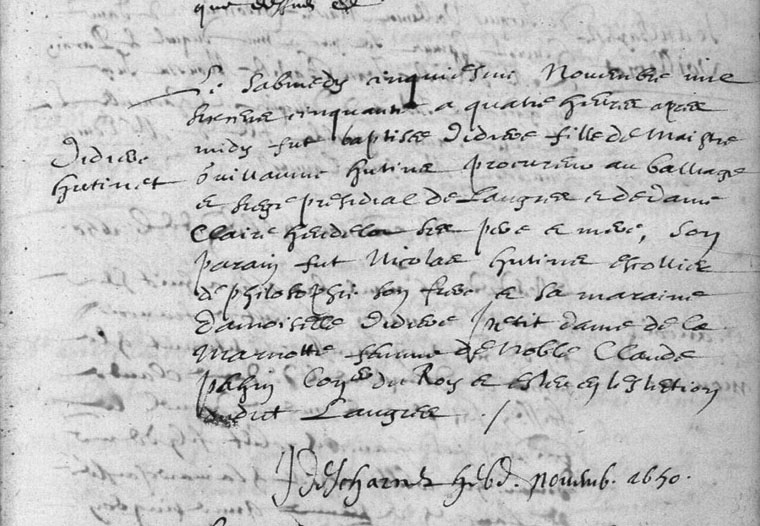 que dessus &
Le Sabmedy cinquiesme Novembre mil
six cens cinquante a quatre heures apres
midy fut baptisée Didiere fille de Maistre
Didiere
Hutinet
Guillaume Hutinet procureur au balliage
et siege presidial de Langres et de dame
Claire ses pere et mere, son
parain fut Nicolas Hutinet escollier
de philosophie son frere et sa maraine
damoiselle Didiere petit dame de la
Marnotte femme de Noble Claude
Con.er du Roy et esleu en l'eslection
dudit Langres ./
hebd. novemb. 1650.